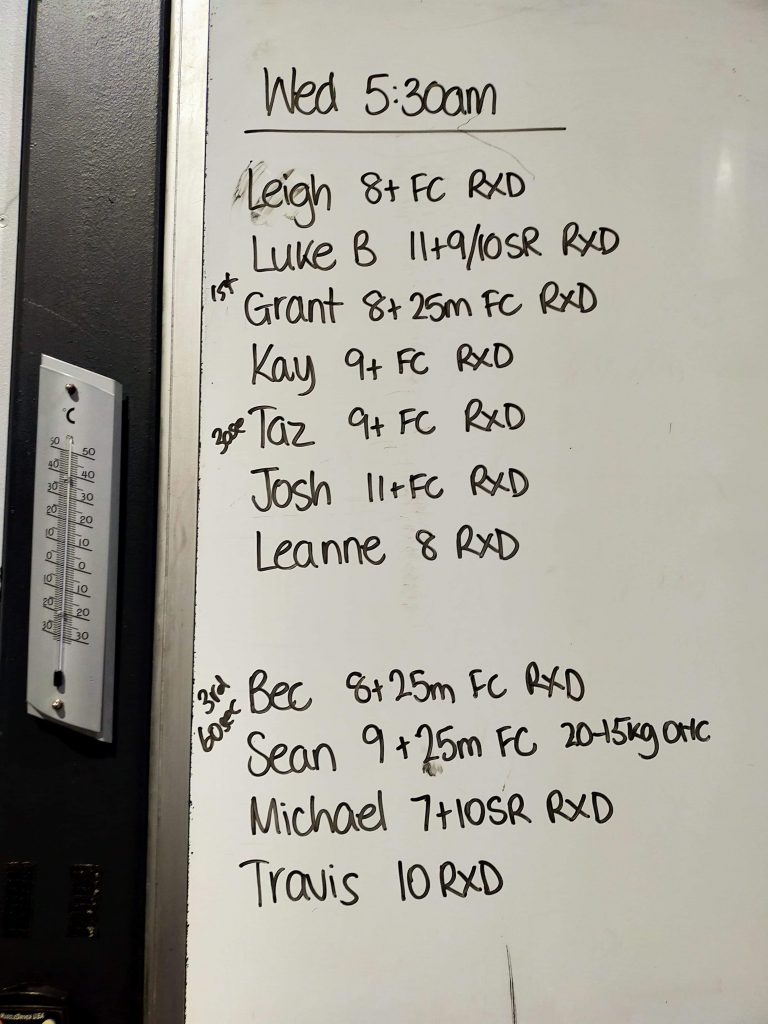 Wed 5:30am
Leigh 8+ FC RXD
Luke B 11+9/10SR RXD
1st Grant 8+ 25m FC RXD
Kay 9+ FC RXD
Taz 9+ FC RXD
Josh 11+FC RXD
Leanne 8 RXD
3rd Bec 8+25m FC RXD
60sec Sean 9+25m FC 20-15kg OHC
Michael 7+10SR RXD
Travis 10 RXD
°C
50 50
40 40
30 30
20 20
10 10
0 0
10 10
20 20
30 30